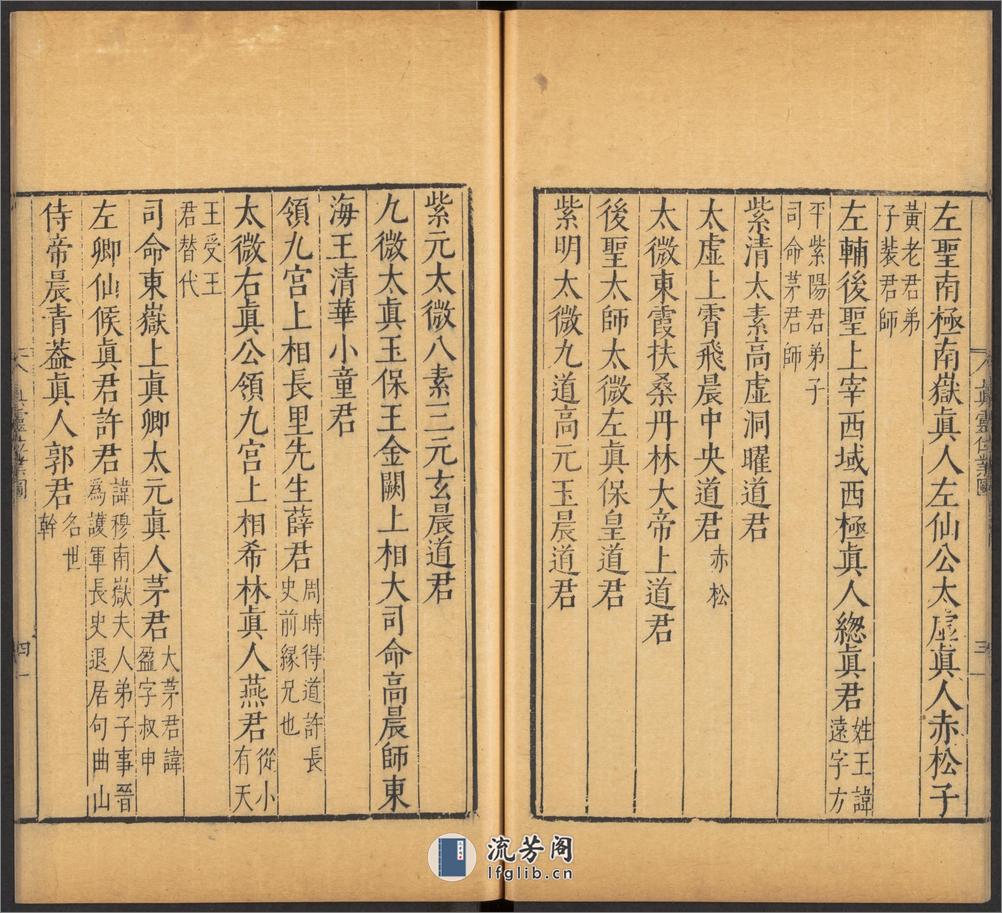 左聖南極南嶽眞人左仙公太虛眞人赤松子
黃老君弟
子裴君師
左輔後聖上宰西域西極眞人緫眞君姓王諱
遠字方
平紫陽君弟子
司命茅君師
紫清太素高虛洞曜道君
太虛上霄飛晨中央道君赤松
太微東霞扶桑丹林大帝上道君
後聖太師太微左眞保皇道君
紫明太微九道高元玉晨道君
眞靈位業圖
三
紫元太微八素三元玄晨道君
九微太眞玉保王金闕上相大司命高晨師東
海王清華小童君
領九宮上相長里先生薛君周時得道許長
史前縁兄也
太微右眞公領九宮上相希林眞人燕君從小
有天
王受王
君替代
司命東嶽上眞卿太元眞人茅君大茅君諱
盈字叔申
左卿仙候眞君許君諱穆南嶽夫人弟子事晉
爲護軍長史退居句曲山
侍帝晨青葢眞人郭君名世
幹
眞靈位業圖
四
流芳阁
lfglib.cn